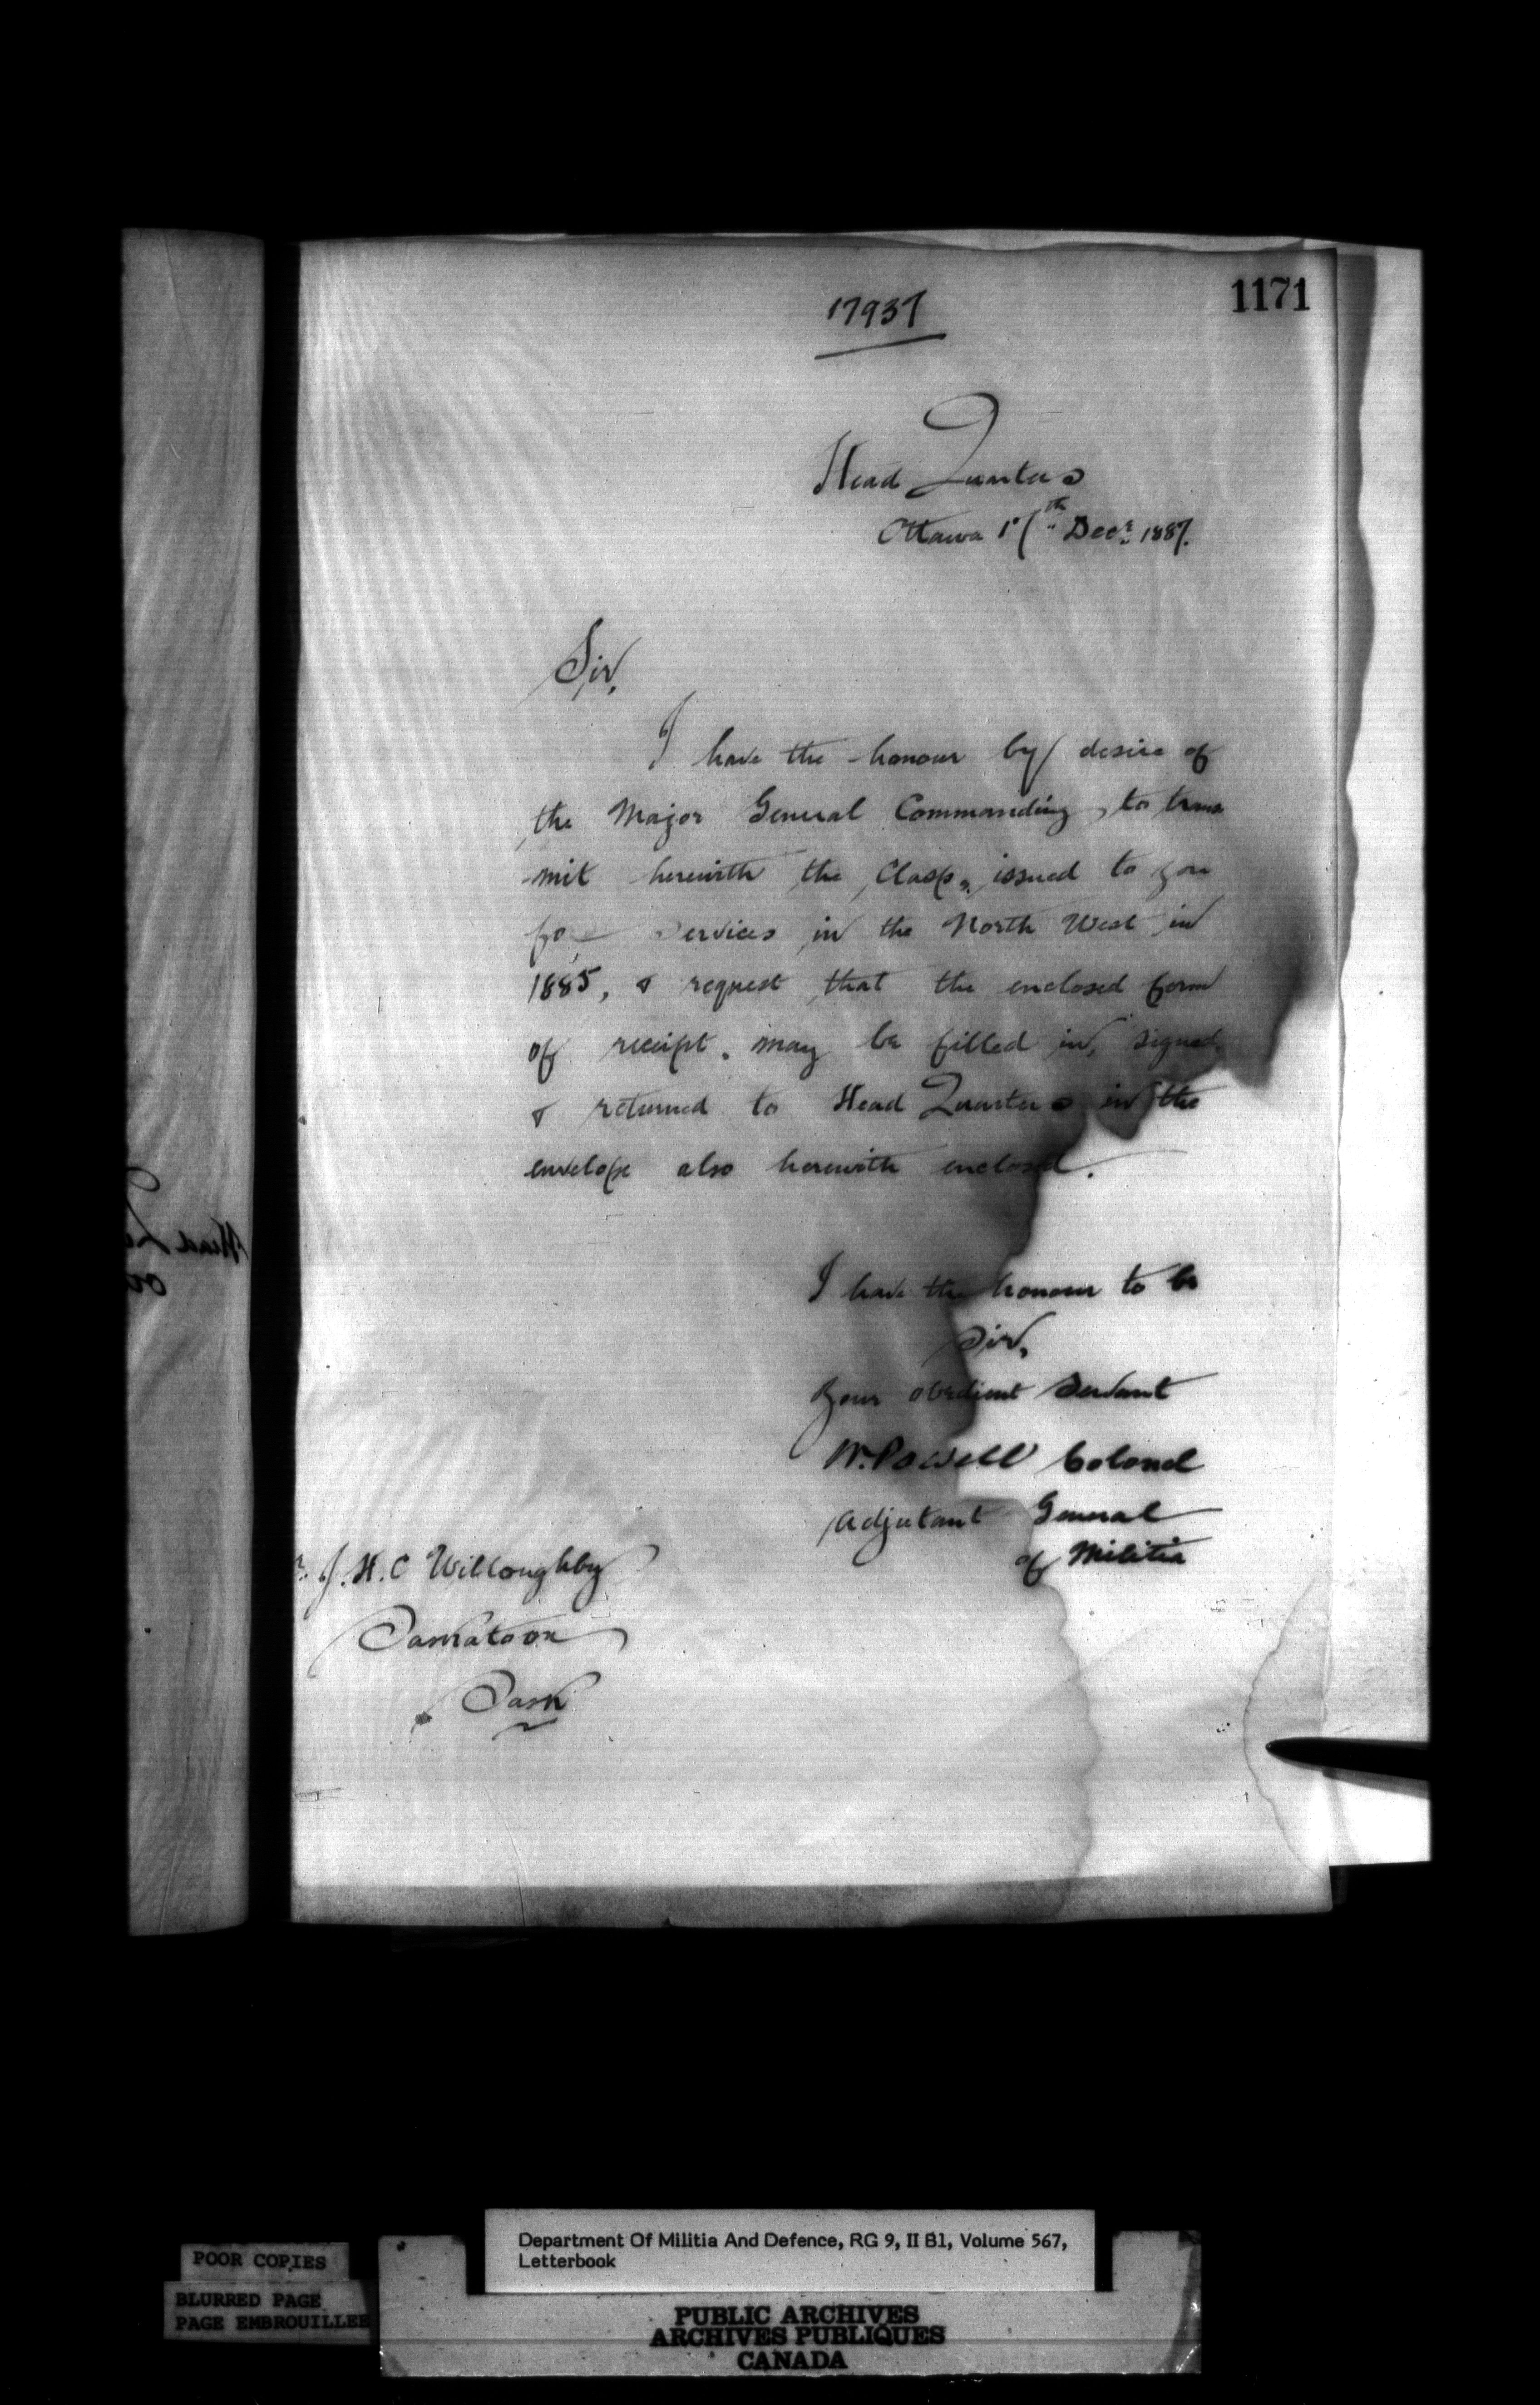 1171
17937
Head Quarters
Ottawa 17th Decr. 1887.
Sir,
I have the honour by desire of
the Major General Commanding, to trans
mit herewith the Clasp, issued to you
for services in the North West in
1885, & request that the enclosed form
of receipt, may be filled in, signed,
& returned to Head Quarters in the
envelope also herewith enclosed.
I have the honour to be
Sir,
Your obedient Servant
W. Powell Colonel
Adjutant General
of Militia
r. J. H. C Willoughby
Saskatoon
Sask
Department Of Militia And Defence, RG 9, II B1, Volume 567,
Letterbook
POOR COPIES
BLURRED PAGE
PAGE EMBROUILLEE
PUBLIC ARCHIVES
ARCHIVES PUBLIQUES
CANADA